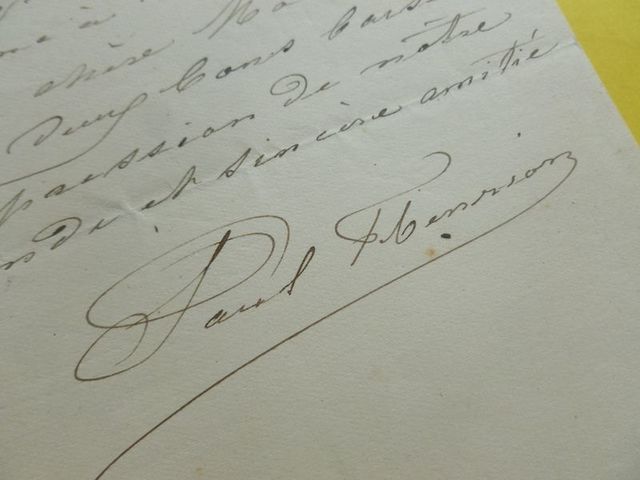 à
chère Ma
deux bons bais
pression de nôtre
nde et sincère amitié
Paul Henrion